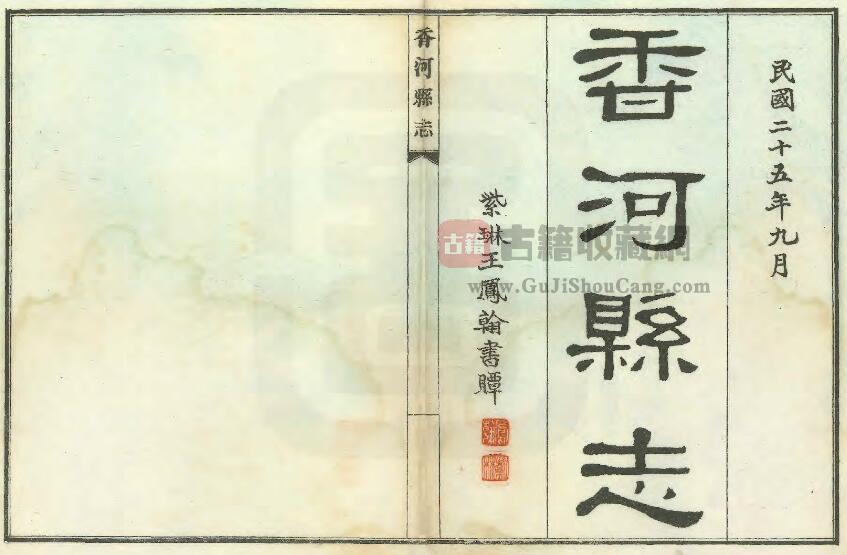 民國二十五年九月
香河縣志
紫琳王鳳翰書贉
香河縣志
古籍
古籍收藏網
www.GuJiShouCang.com